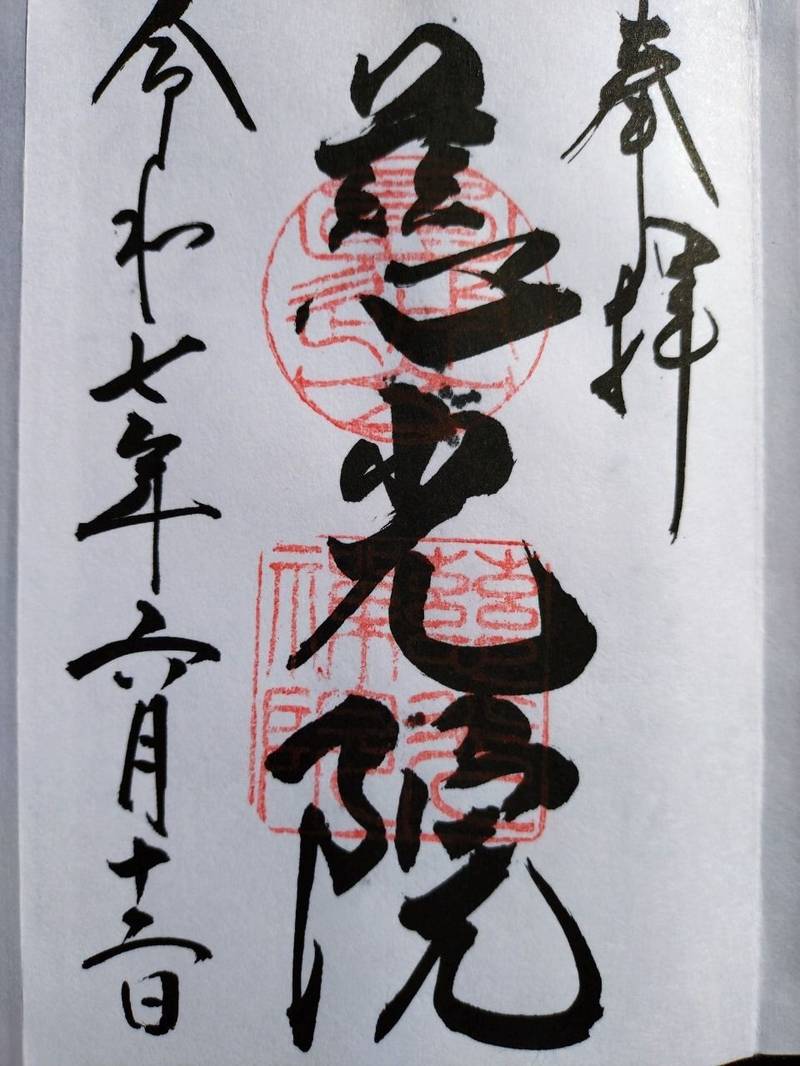 奉拝
慈光院
慈光
禅院
令和七年六月十二日